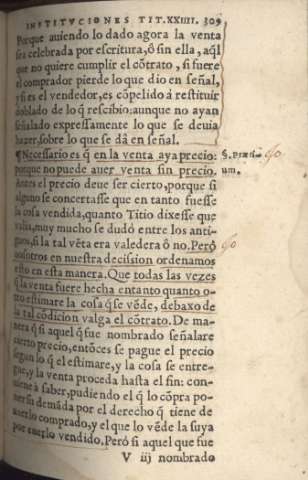 INSTITVCIONES TIT.XXIIII. 309
Porque auiendo lo dado agora la venta
sea celebrada por escritura, ò sin ella, aq̃l
que no quiere cumplir el cõtrato, si fuere
el comprador pierde lo que dio en señal,
y si es el vendedor, es cõpelido á restituir
doblado de lo q̃ rescibio: aunque no ayan
señalado expressamente lo que se deuia
hazer, sobre lo que se dá en señal.
¶ Necessario es q̃ en la venta aya precio:
porque no puede auer venta sin precio.
Antes el precio deue ser cierto, porque si
alguno se concertasse que en tanto fuesse
la cosa vendida, quanto Titio dixesse que
valia, muy mucho se dudó entre los anti-
guos, si la tal vẽta era valedera ô no. Peró
nosotros en nuestra decision ordenamos
esto en esta manera. Que todas las vezes
q̃ la venta fuere hecha entanto quanto o-
tro estimare la cosa q̃ se vẽde, debaxo de
la tal cõdicion valga el cõtrato. De ma-
nera q̃ si aquel q̃ fue nombrado señalare
cierto precio, entõces se pague el precio
segun lo q̃ el estimare, y la cosa se entre-
gue, y la venta proceda hasta el fin: con-
uiene à saber, pudiendo el q̃ lo cõpra po-
ner su demãda por el derecho q̃ tiene de
auerlo comprado, y el que lo vẽde la suya
por auerlo vendido. Peró si aquel que fue
V iij nombrado
§. Preti-
um.